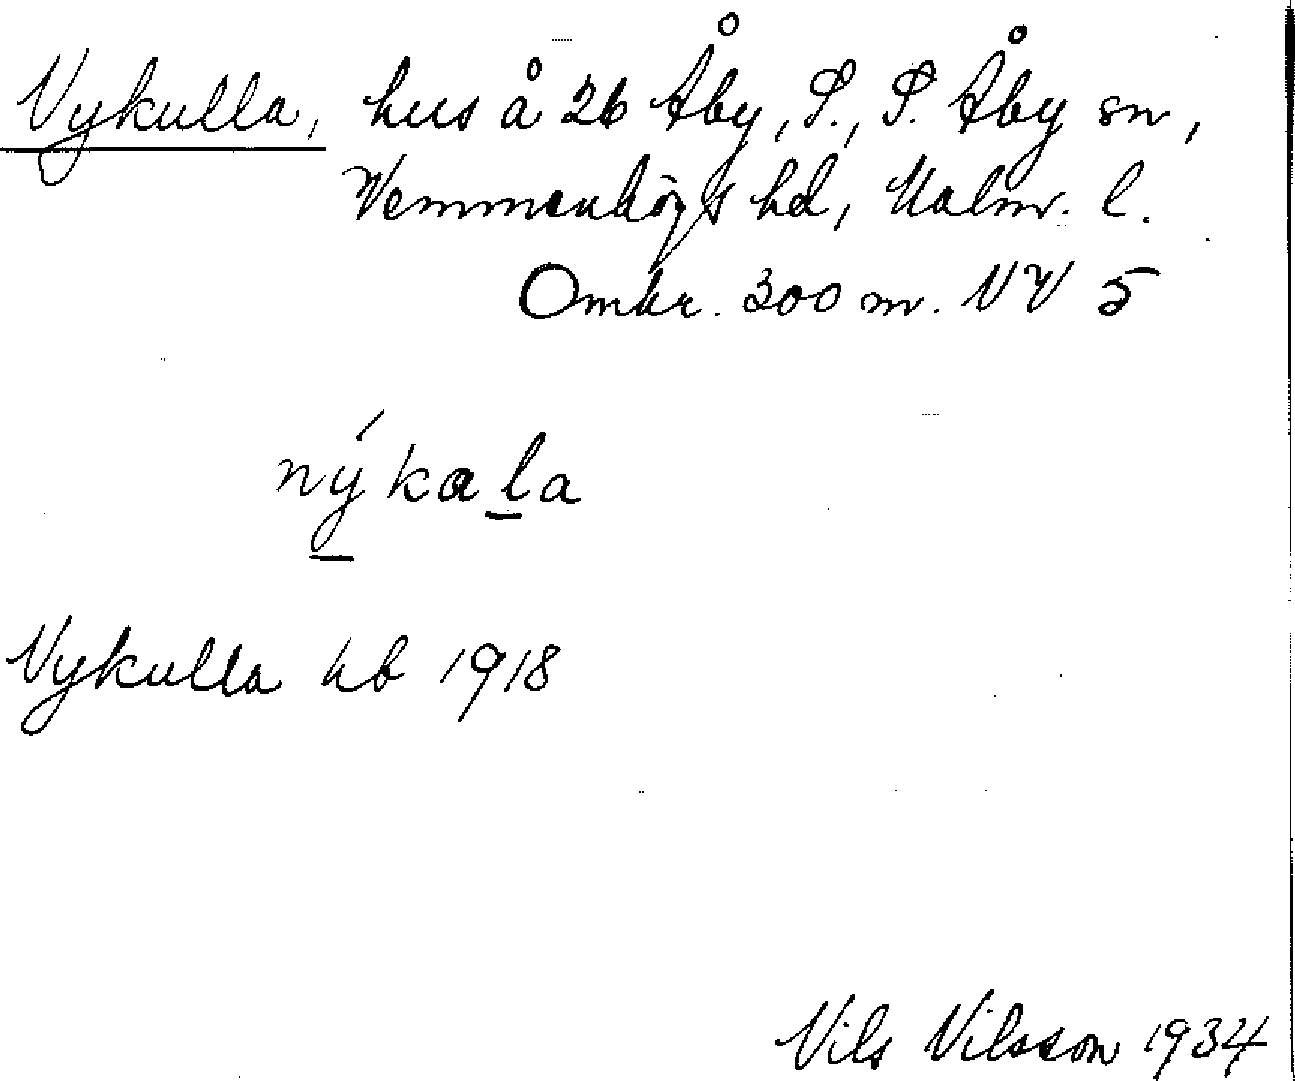 Nykulla, hus å 26 Åby, S., S. Åby sn,
Vemmenhögs hd, Malm. l.
Omkr. 300 m. NV 5
nýkala
Nykulla hb 1918
Nils Nilsson 1934